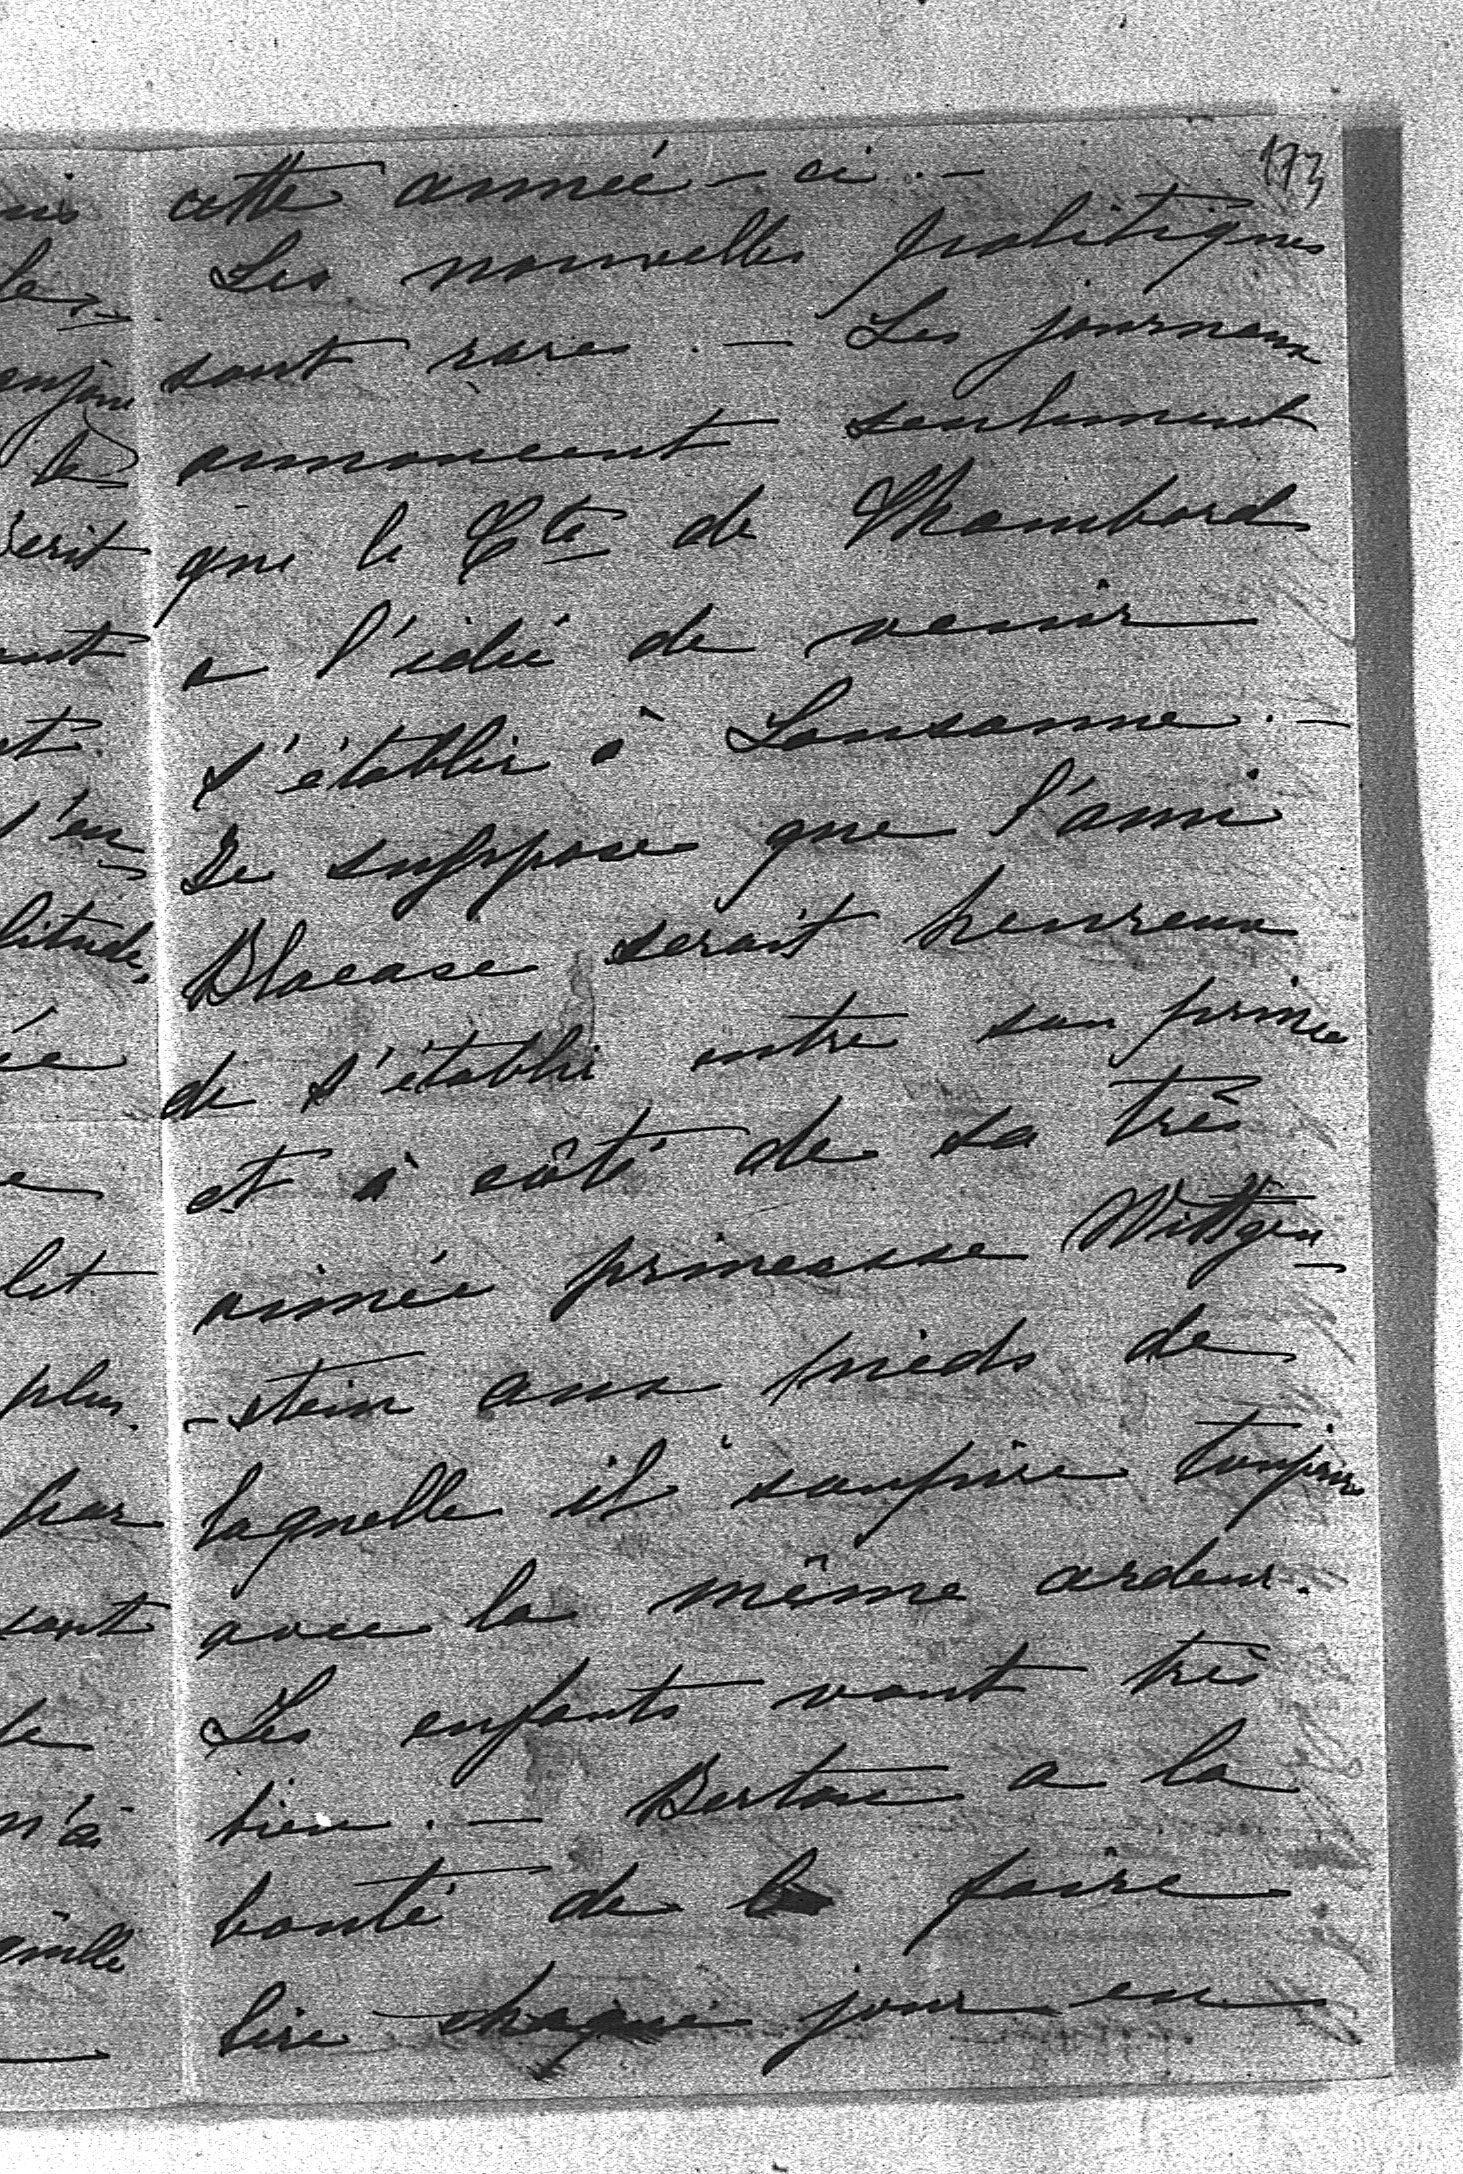 173
cette année-ci. -
Les nouvelles politiques
sont rares. - Les journaux
annoncent seulement
que le Cte de Chambord
a l'idée de venir
s'établir à Lausanne. -
Je suppose que l'ami
Blacase serait heureux
de s'établir entre son prince
et à côté de sa très
aimée princesse Wittgen-
-stein aux pieds de
laquelle il soupire toujours
avec la même ardeur.
Les enfants vont très
bien. - a la
bonté de faire
lire chaque jour en